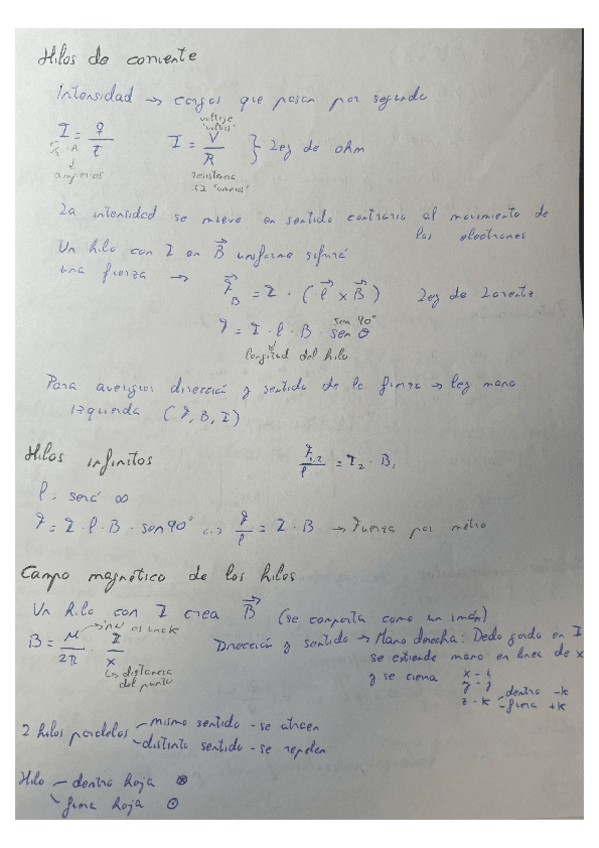 Hilos de corriente
Intensidad → cargas que pasan por segundo
I = q/t   I = V/R } Ley de ohm
voltaje "voltios"
A
amperios
resistencia Ω "omnios"
La intensidad se mueve en sentido contrario al movimiento de
los electrones
Un hilo con I en B⃗ uniforme sufrirá
una fuerza → F⃗_B = I · (l⃗ x B⃗)   Ley de Lorentz
F = I · l · B · sen θ
sen 90°
longitud del hilo
Para averiguar dirección y sentido de la fuerza → ley mano
izquierda (F, B, I)
Hilos infinitos   F₁,₂/l = I₂ · B₁
l - será ∞
F = I · l · B · sen 90° ↔ F/l = I · B → Fuerza por metro
Campo magnético de los hilos
Un hilo con I crea B⃗ (se comporta como un imán)
B = μ/2π · I/x
distancia del punto
Dirección y sentido → Mano derecha: Dedo gordo en I
se extiende mano en línea de x
y se cierra
x - i
y - j
z - k
dentro -k
fuera +k
2 hilos paralelos - mismo sentido - se atraen
- distinto sentido - se repelen
Hilo - dentro hoja ⊗
- fuera hoja ⊙